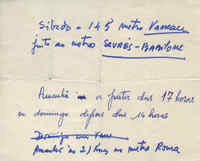 Sábado - 145 metro Vaneau
junto ao metro SÈVRES-BABYLONE
Amanhã - a partir das 17 horas
ou domingo depois das 14 horas
Domingo
Amanhã às 21 horas no metro Roma